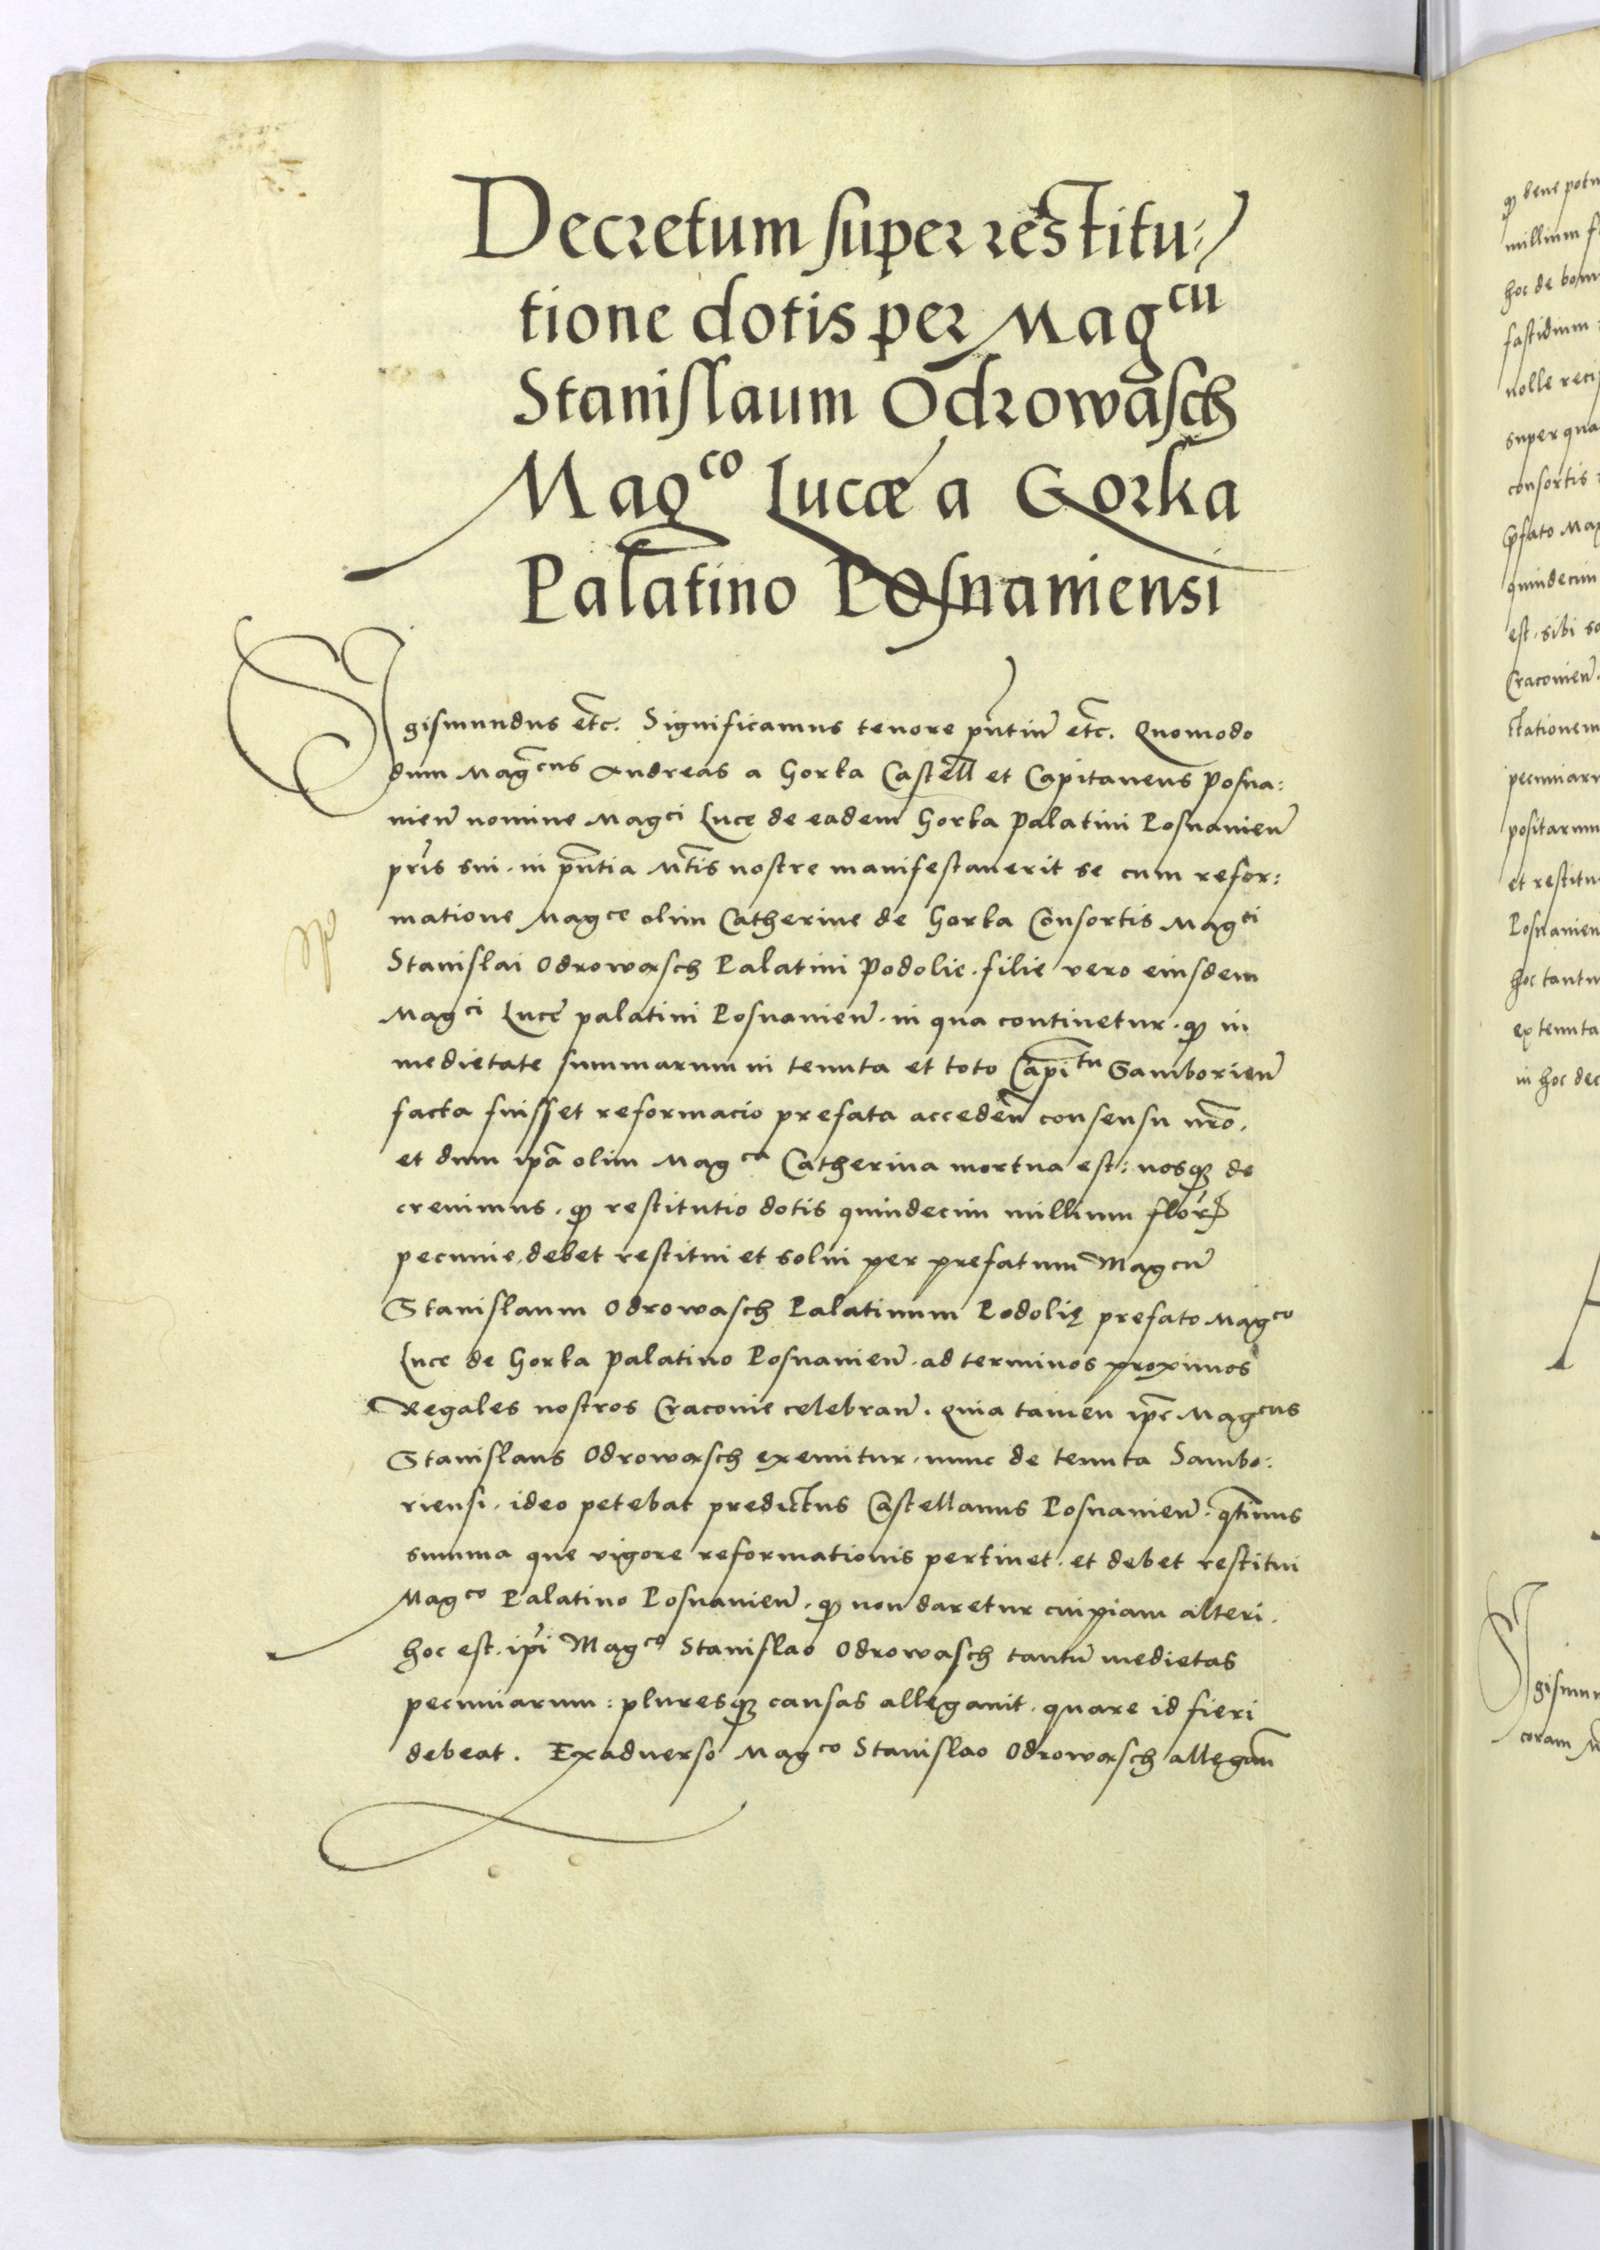 Decretum super restitu:
tione dotis per Mag^cu
Stanislaum Odrowasch
Mag^co Lucæ a Gorka
Palatino Posnaniensi
Sigismundus etc. Significamus tenore pñtiũ etc. Quomodo
dum Mag^cus Andreas a Gorka Castell et Capitaneus Posna:
nieñ nomine Mag^ci Luce de eadem Gorka Palatini Posnanieñ
pr̃is sui. in pñtia Mt̃is nostre manifestauerit se cum refor:
matione Mag^ce olim Catherine de Gorka Consortis Mag^ci
Stanislai Odrowasch Palatini Podolie. filie vero eiusdem
Mag^ci Luce palatini Posnanieñ. in qua continetur. ꝙ in
medietate summarum in tenuta et toto Capi^tu Samborieñ
facta fuisset reformacio prefata accedeñ consensu nr̃o.
et dum ip̃a olim Mag^ca Catherina mortua est: nosqꝫ de
creuimus. ꝙ restitutio dotis quindecim millium florꝝ
pecunie, debet restitui et solui per prefatum Magcũ
Stanislaum Odrowasch Palatinum Podolię prefato Mag^co
Luce de Gorka Palatino Posnanieñ. ad terminos proximos
Regales nostros Craconie celebrañ. Quia tamen ip̃e Mag^cus
Stanislaus Odrowasch exemitur. nunc de tenuta Sambo:
riensi. ideo petebat predictus Castellanus Posnanieñ. qt̃inus
summa que vigore reformationis pertinet. et debet restitui
Mag^co Palatino Posnanieñ. ꝙ non daretur cuipiam alteri.
hoc est. ip̃i Mag^co Stanislao Odrowasch tantũ medietas
pecuniarum: pluresqꝫ causas allegauit. quare id fieri
debeat. Exaduerso Mag^co Stanislao Odrowasch allegañ
ꝙ bene potu
millium f
hoc de bon
fastidium
nolle reci
super qua
consortis
p̃fato Ma
quindecim
est. sibi so
Cracouieñ.
pecuniar
positarum
et restitu
Posnanien
hoc tantu
ex tenuta
in hoc dec
gismun
coram